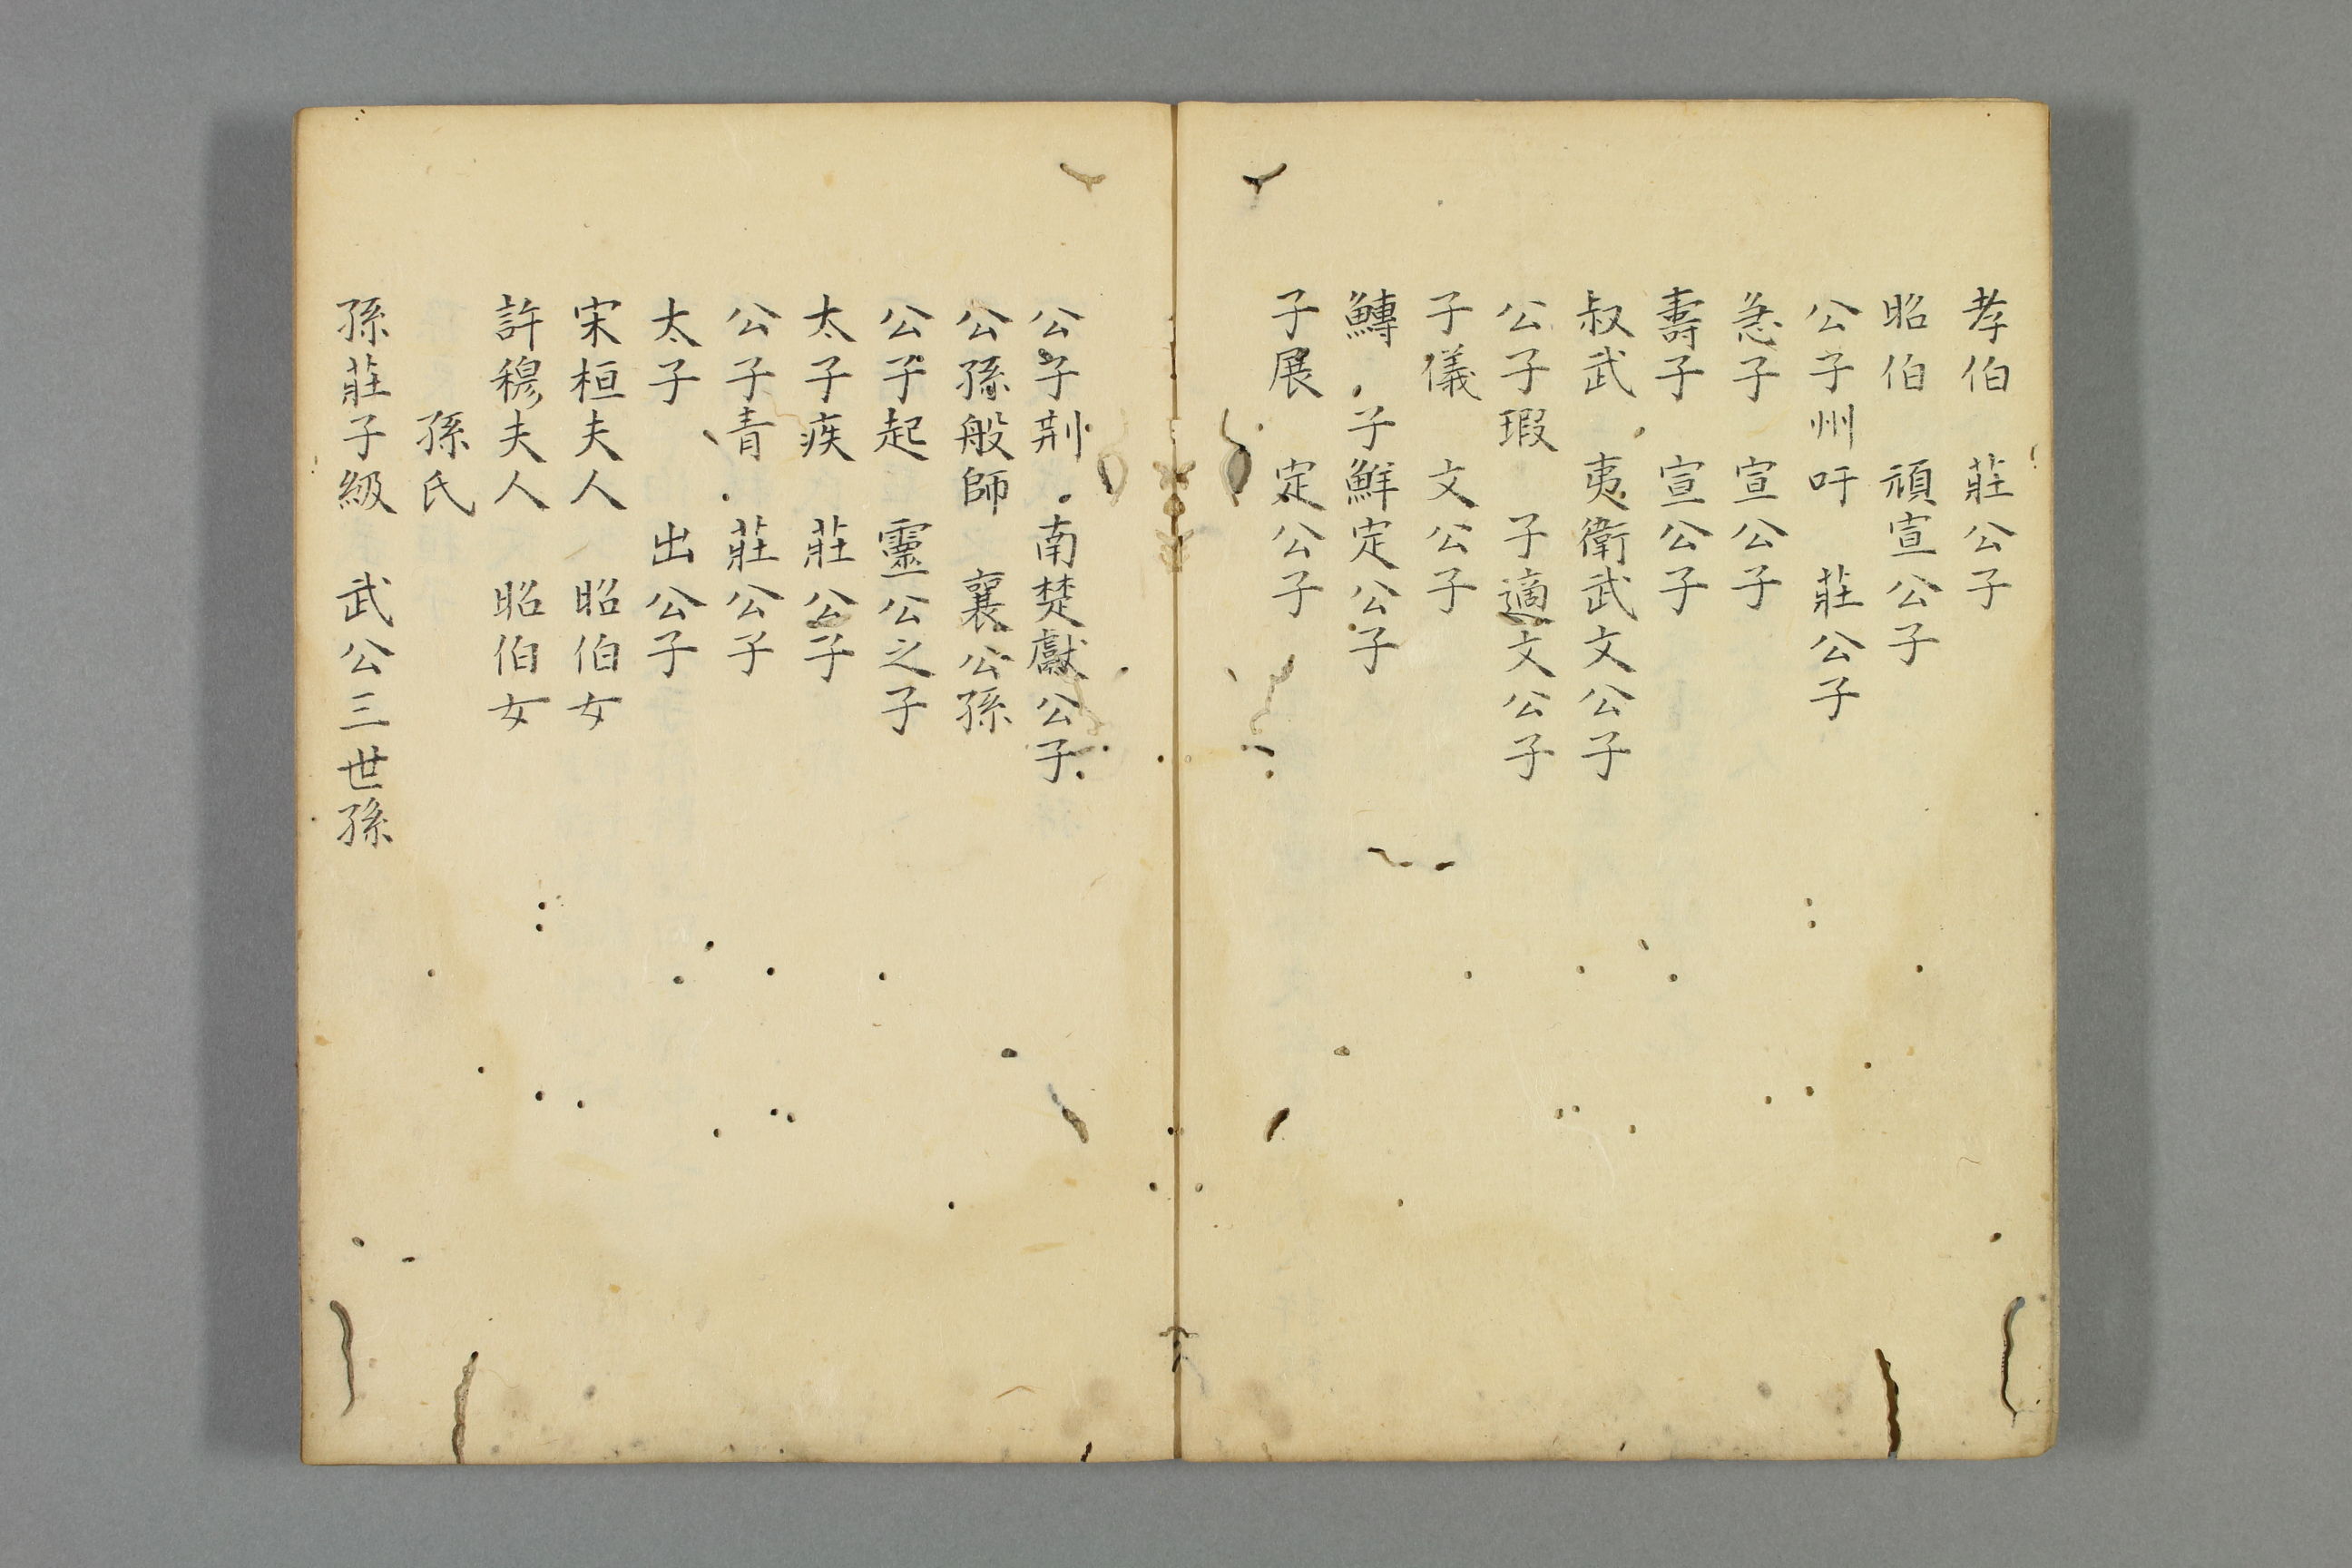 孝伯　莊公子
昭伯　頑宣公子
公子州吁　莊公子
急子　宣公子
壽子　宣公子
叔武　夷衛武文公子
公子瑕　子適文公子
子儀　文公子
鱄　子鮮定公子
子展　定公子
公子荆　南楚獻公子
公孫般師　襄公孫
公子起　靈公之子
太子疾　莊公子
公子青　莊公子
太子　出公子
宋桓夫人　昭伯女
許穆夫人　昭伯女
孫氏
孫莊子級　武公三世孫